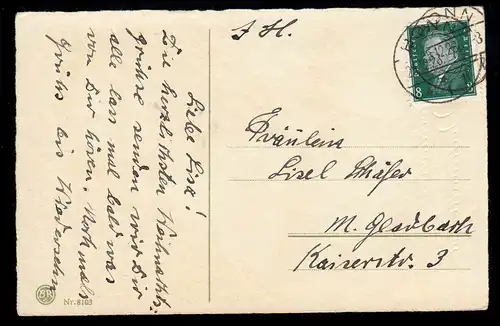 Liebe Lisa!
Die herzlichsten Weihnachts-
grüsse senden wir Dir
alle lass mal bald was
von Dir hören. Nochmals
Gruß bis Wiedersehn
J. H.
Fräulein
Lisel Schäfer
M. Gladbach
Kaiserstr. 3
BONN
8
Nr. 8103